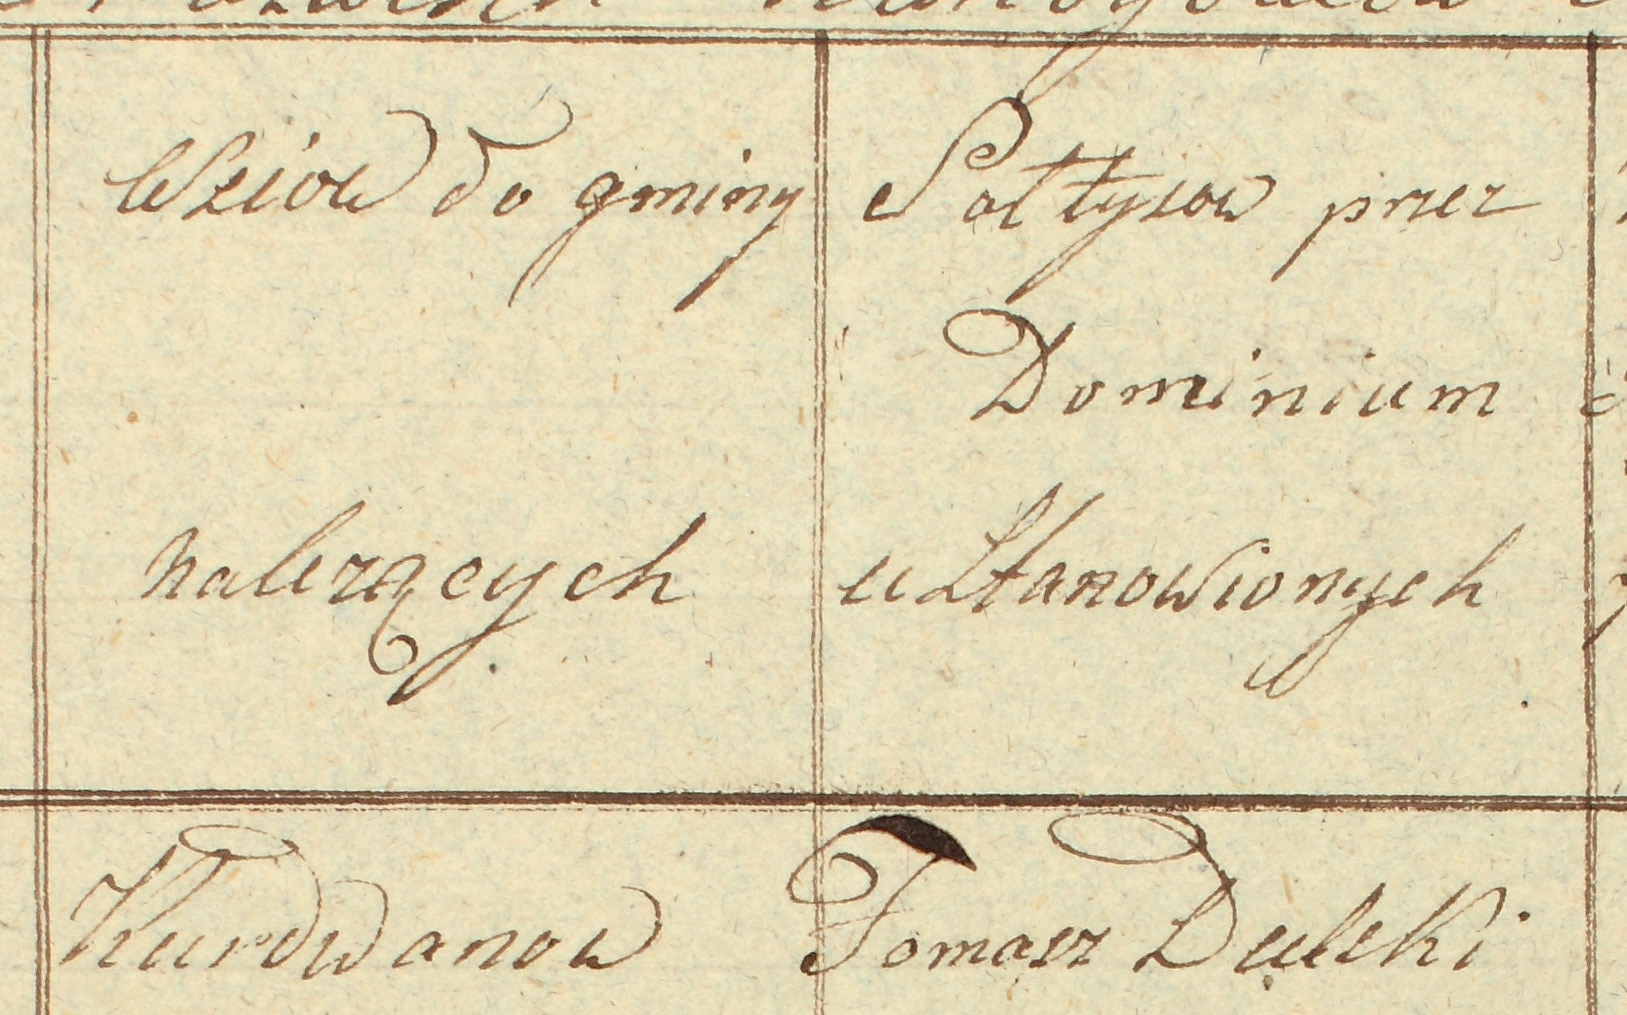 Wsiów do gminy
należących
Sołtysow przez
Dominium
ustanowionych
Kurdwanow
Tomasz Dulski